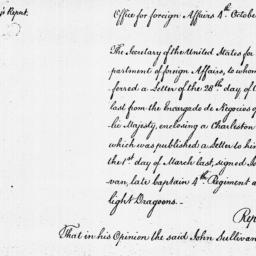 's Report.
Office for foreign Affairs 4th. October
The Secretary of the United States for
partment of foreign Affairs, to whom
ferred a Letter of the 28th day of
last from the Encargado de Negocios of
lic Majesty, enclosing a Charleston
which was published a Letter to his
the 1st day of March last, signed
van, late Captain 4th Regiment
light Dragoons.—
Rep
That in his Opinion the said John Sullivan